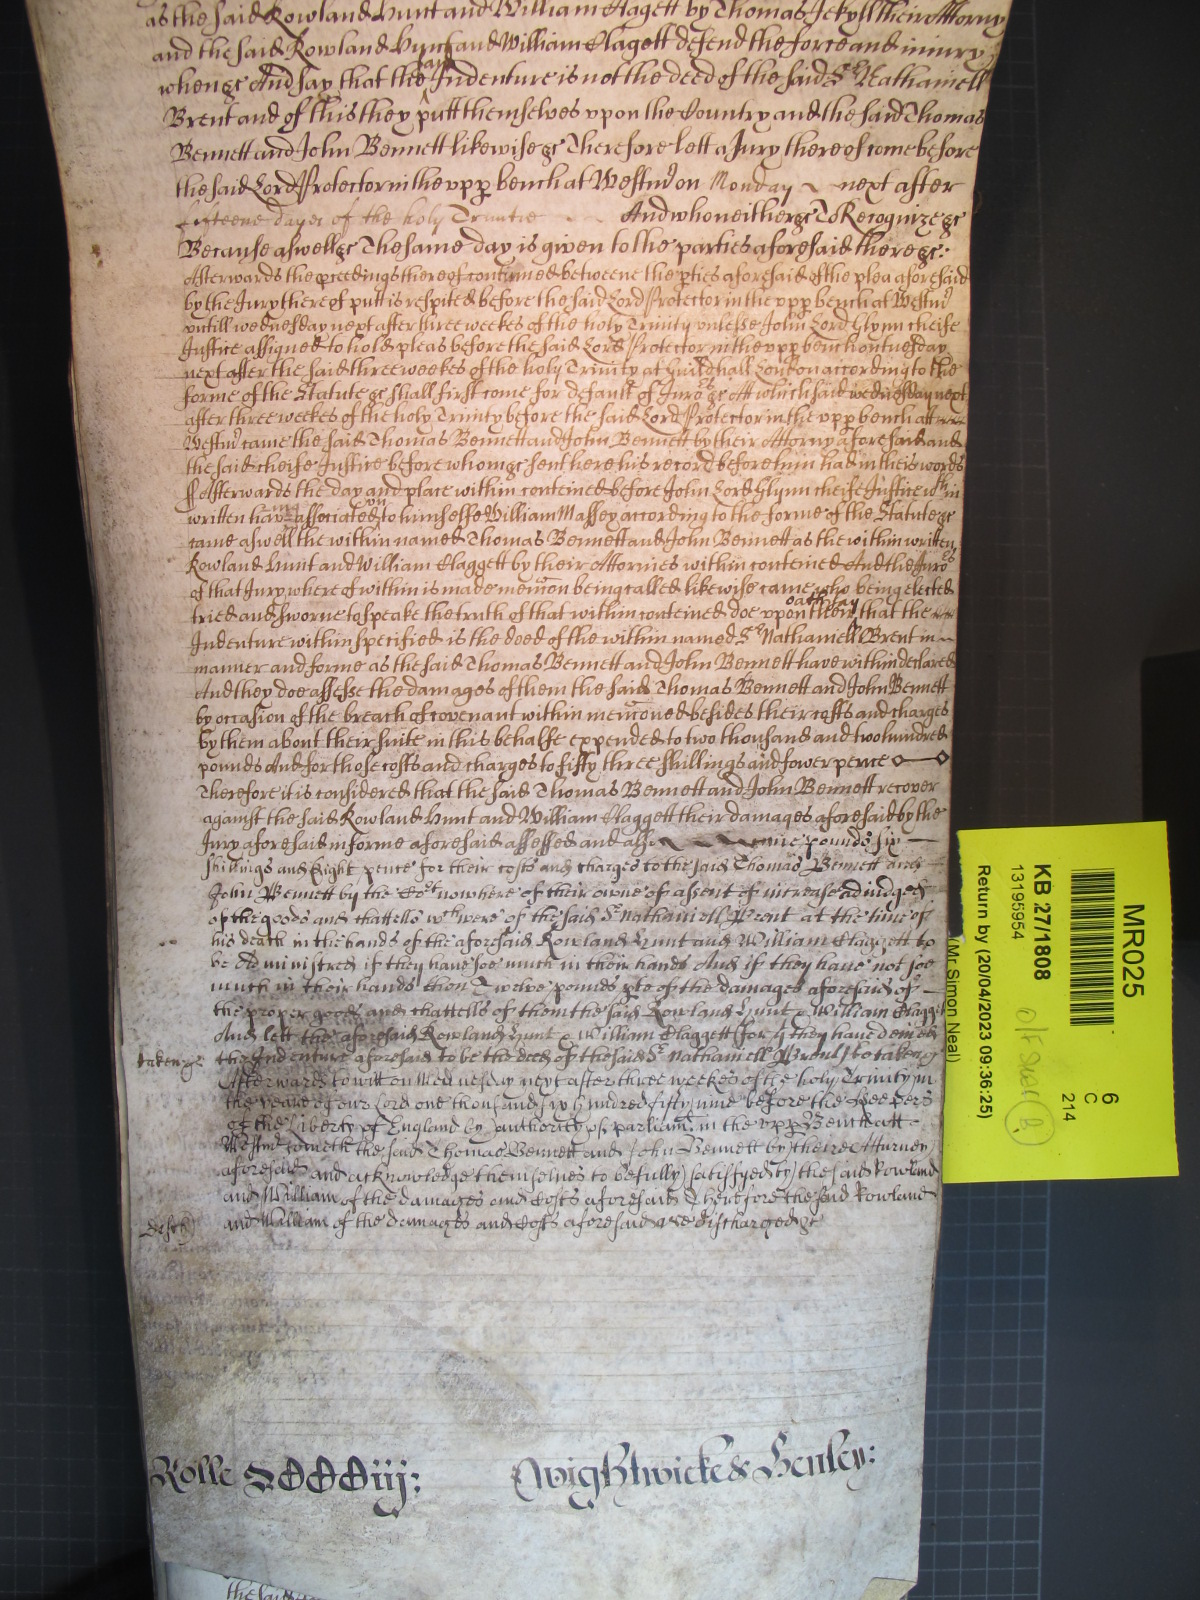 as the said Rowland Hunt and William Clagett by Thomas Jekyll their Attorny
and the said Rowland Hunt and William Clagett defend the force and iniury
when &c And say that the said Indenture is not the deed of the said Sr Nathaniell
Brent and of this they putt themselves vpon the Country and the said Thomas
Bennett and John Bennett likewise &c Therefore lett a Jury thereof come before
the said Lord Protector in the vpp bench at Westmr on Monday next after
fifteene dayes of the holy Trinitie And who neither &c To Recognize &c
Because aswell &c The same day is given to the parties aforesaid there &c:
Afterwards the pceedings thereof continued betweene the pties aforesaid of the plea aforesaid
by the Jury thereof putt is respited before the said Lord Protector in the vpp bench at Westmr
vntill wednesday next after three weekes of the holy Trinity vnlesse John Lord Glynn cheife
Justice assigned to hold pleas before the said Lord Protector in the vpp bench on tuesday
next after the said three weekes of the holy Trinity at Guildhall London according to the
forme of the Statute &c shall first come for default of Jurors &c Att which said wednesday next
after three weekes of the holy Trinity before the said Lord Protector in the vpp bench att
Westmr came the said Thomas Bennett and John Bennett by their Attorny aforesaid and
the said cheife Justice before whom &c sent here his record before him had in theis words
ss Afterwards the day and place within conteined before John Lord Glynn cheife Justice wthin
written haveing associated vn to himselfe William Massey according to the forme of the Statute &c
came aswell the within named Thomas Bennett and John Bennett as the within written
Rowland Hunt and William Claggett by their Attornies within conteined And the Jurors
of that Jury whereof within is made mencon being called likewise came who being elected
tried and sworne to speake the truth of that within conteined doe vpon their oath say that the
Indenture within specified is the deed of the within named Sr Nathaniell Brent in
manner and forme as the said Thomas Bennett and John Bennett have within declared
And they doe assesse the damages of them the said Thomas Bennett and John Bennett
by occasion of the breach of covenant within menconed besides their costs and charges
by them about their suite in this behalfe expended to two thousand and two hundred
pounds And for those costs and charges to fifty three shillings and fower pence
Therefore it is considered that the said Thomas Bennett and John Bennett recover
against the said Rowland Hunt and William Claggett their damages aforesaid by the
Jury aforesaid in forme aforesaid assessed and also pounds six
shillings and Eight pence for their costs and charges to the said Thomas Bennett and
John Bennett by the Cort now here of their owne of assent of increase adiudged
of the goods and chattells wch were of the said Sr Nathaniell Brent at the time of
his death in the hands of the aforesaid Rowland Hunt and William Claggett to
be Administred if they have soe much in their hands And if they have not soe
much in their hands then Twelve pounds pte of the damages aforesaid of
the proper goods and chattells of them the said Rowland Hunt & William Clagget
And lett the aforesaid Rowland Hunt & William Claggett (for yt they have denied
taken &c the Indenture aforesaid to be the deed of the said Sr Nathaniell Brent) be taken &c
Afterwards to witt on Wednesday next after three weekes of the holy Trinity in
the yeare of our Lord one thousand six hundred fifty nine before the Keepers
of the Liberty of England by authority of parliamt in the vpp Bench att
Westmr cometh the said Thomas Bennett and John Bennett by theire Atturney
aforesaid and acknowledge themselves to be fully satisfyed by the said Rowland
and William of the damages and Costs aforesaid Therefore the said Rowland
and William of the damages and Costs aforesaid are discharged &c
Rolle Wightwicke & Henley:
MR025
6
C
214
KB 27/1808
13195954
Return by (20/04/2023 09:36:25)
(Mr Simon Neal)